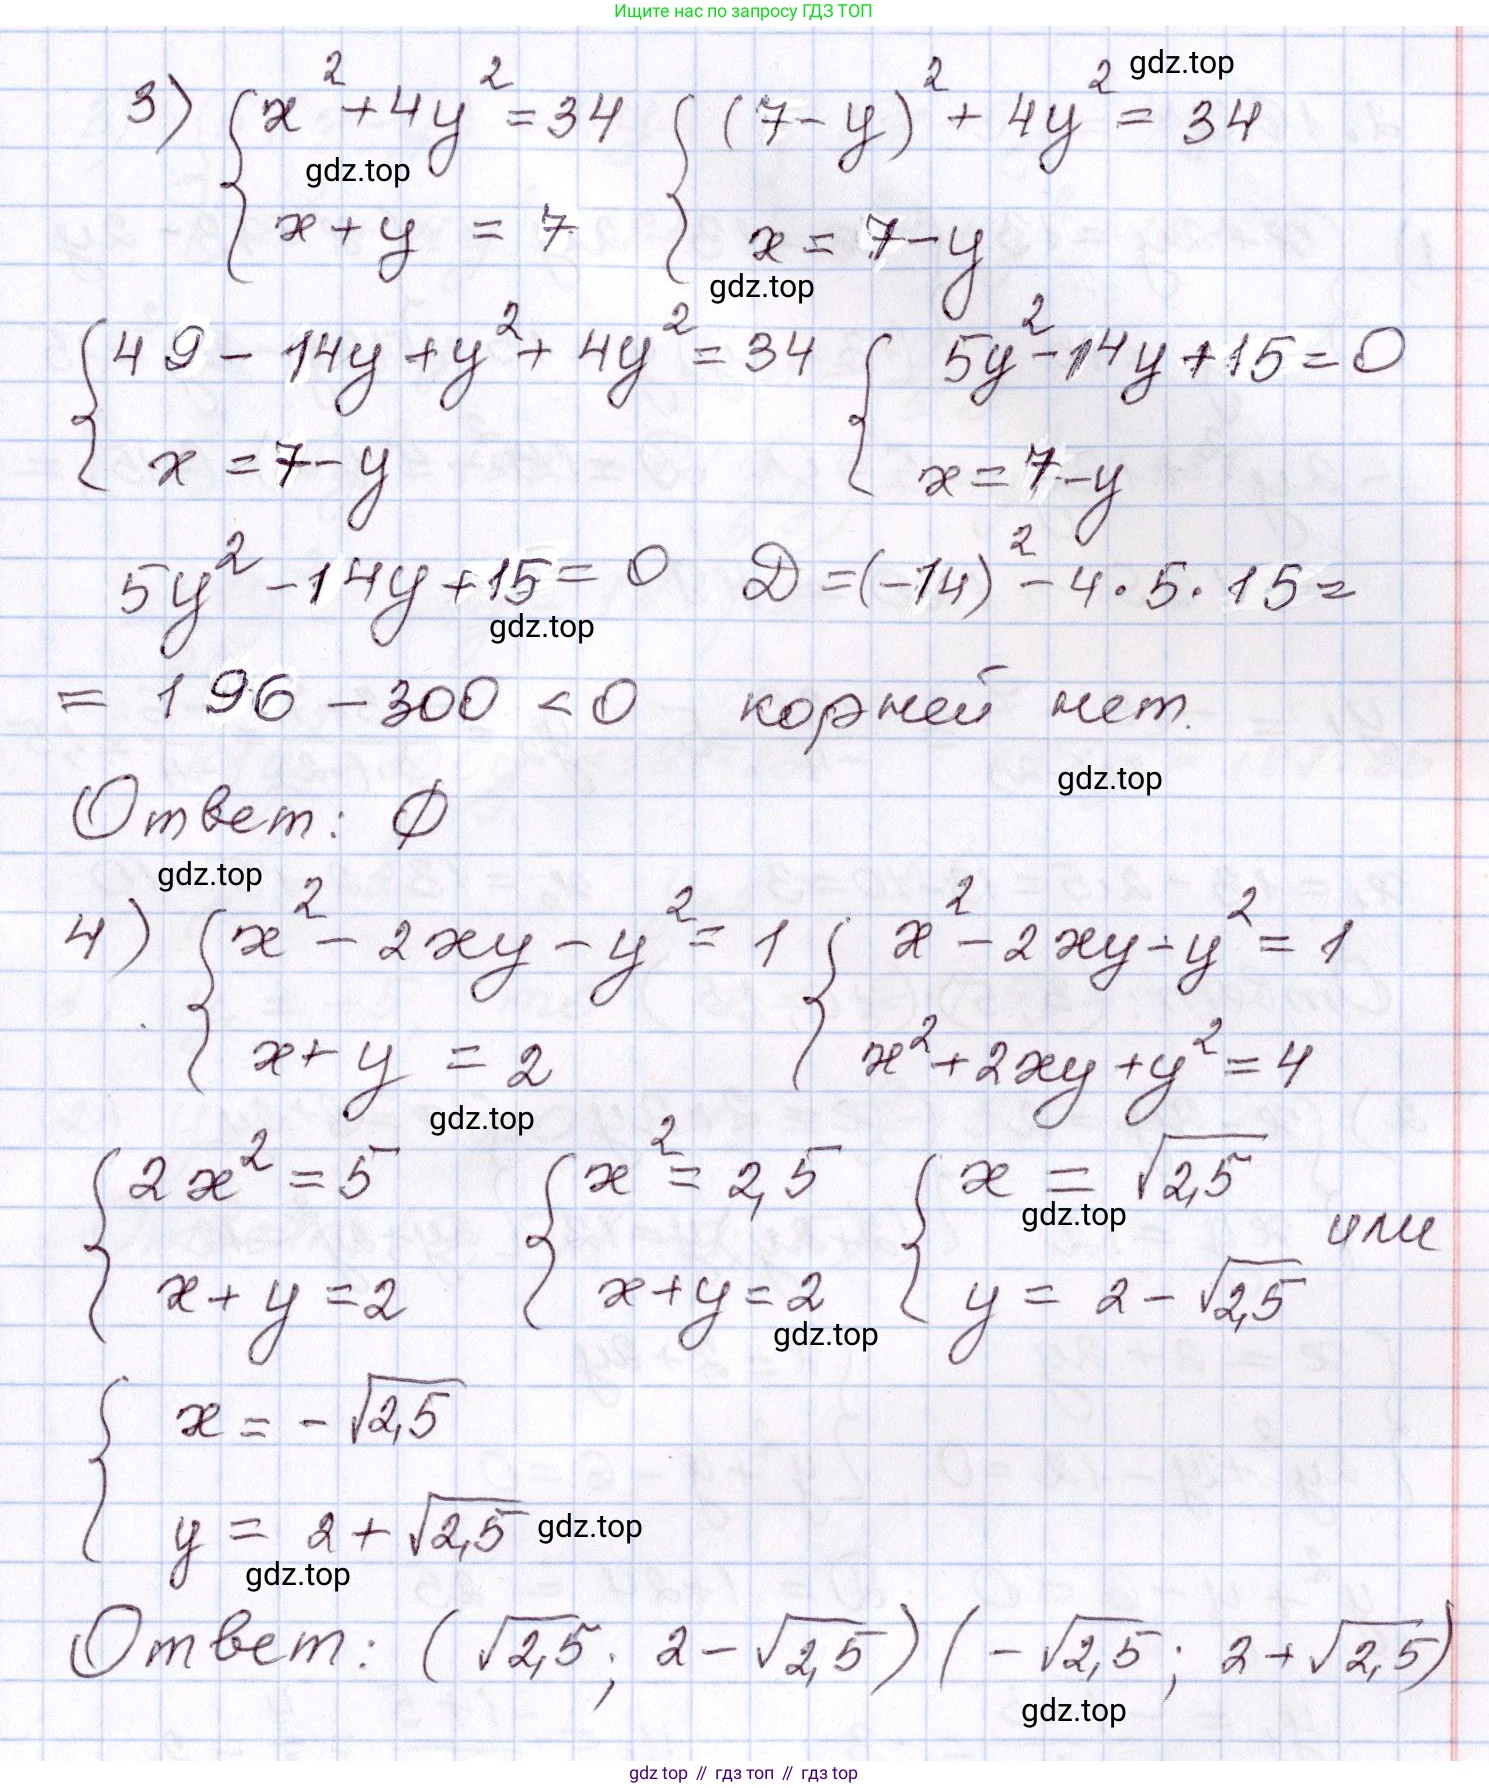 Ищите нас по запросу ГДЗ ТОП
gdz.top
3) { x² + 4y² = 34 { (7 - y)² + 4y² = 34
gdz.top
x + y = 7 x = 7 - y
gdz.top
{ 49 - 14y + y² + 4y² = 34 { 5y² - 14y + 15 = 0
x = 7 - y x = 7 - y
5y² - 14y + 15 = 0 D = (-14)² - 4 · 5 · 15 =
gdz.top
= 196 - 300 < 0 корней нет.
gdz.top
Ответ: ∅
gdz.top
4) { x² - 2xy - y² = 1 { x² - 2xy - y² = 1
x + y = 2 x² + 2xy + y² = 4
gdz.top
{ 2x² = 5 { x² = 2,5 { x = √2,5
gdz.top
или
x + y = 2 x + y = 2 y = 2 - √2,5
gdz.top
{ x = - √2,5
y = 2 + √2,5 gdz.top
gdz.top
Ответ: (√2,5; 2 - √2,5) (- √2,5; 2 + √2,5)
gdz.top
gdz top // гдз топ // гдз top